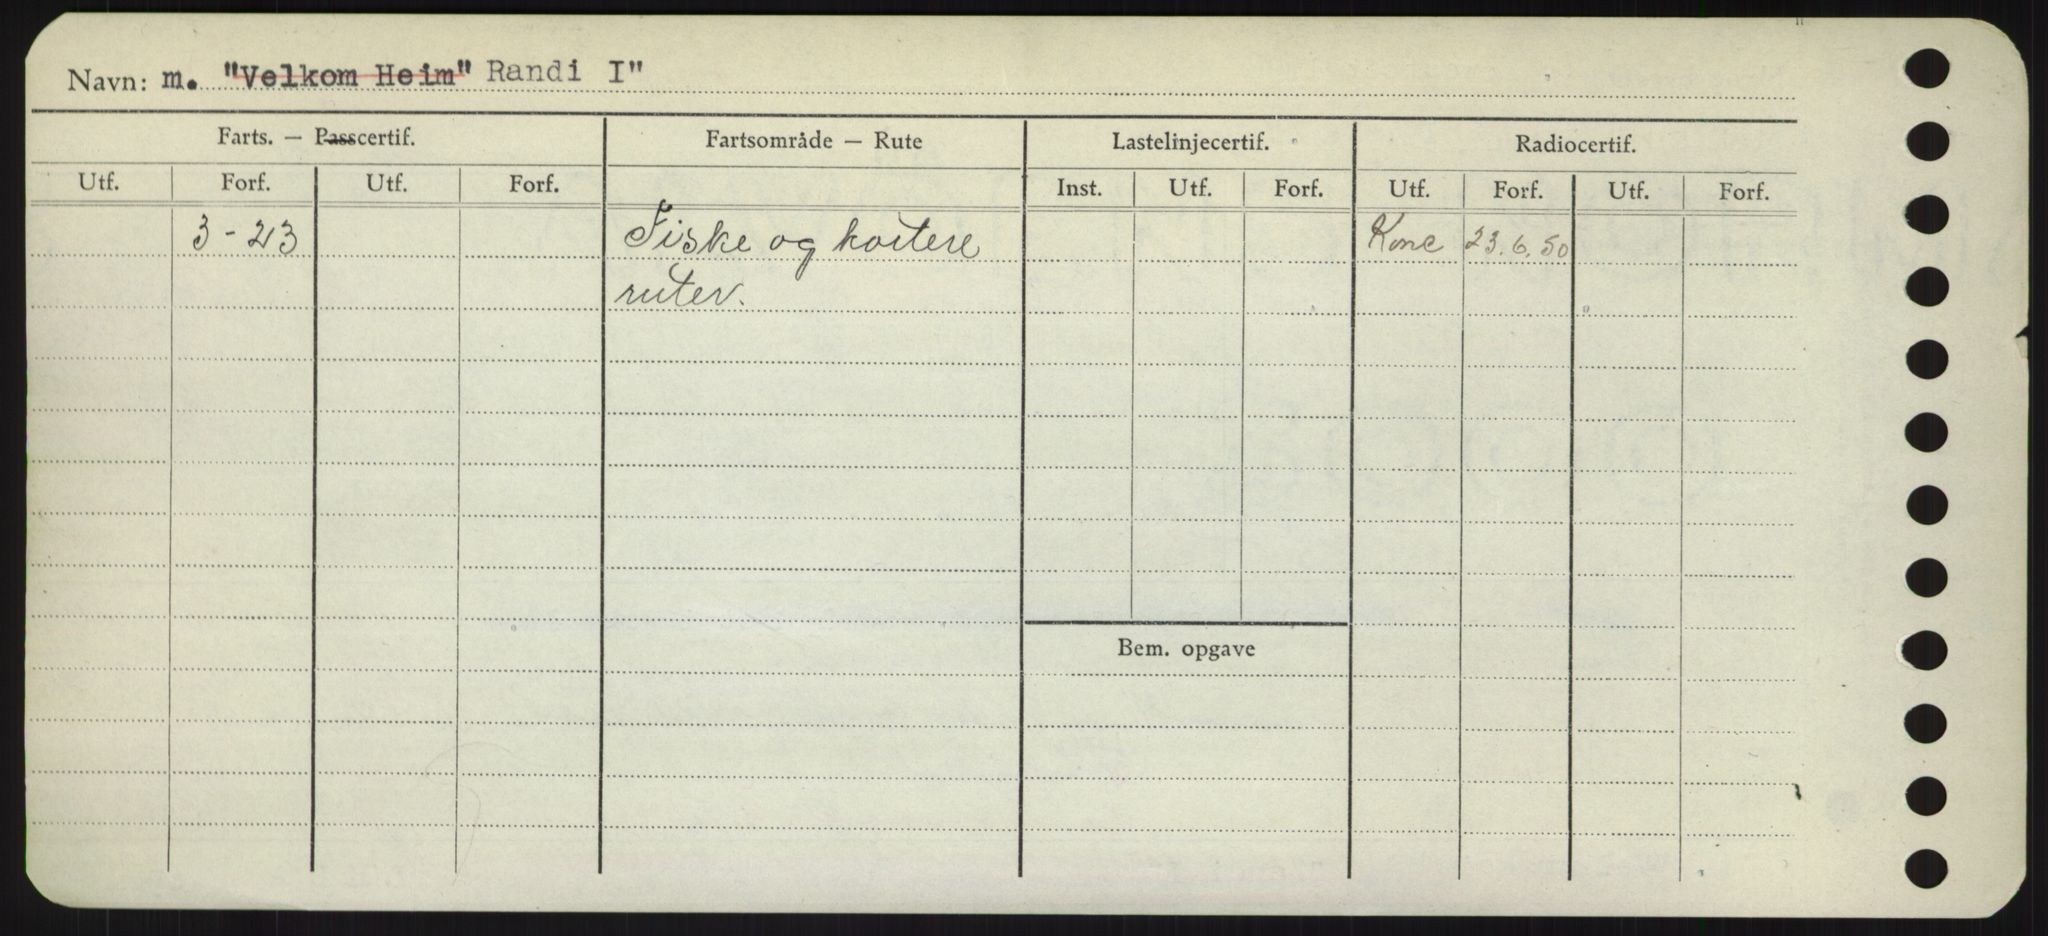 Navn: m. "Velkom Heim" Randi I"
Farts. — Passcertif. Fartsområde — Rute Lastelinjecertif. Radiocertif.
Utf. Forf. Utf. Forf. Inst. Utf. Forf. Utf. Forf. Utf. Forf.
3-23 Fiske og kortere Konc 23.6.50
ruter.
Bem. opgave